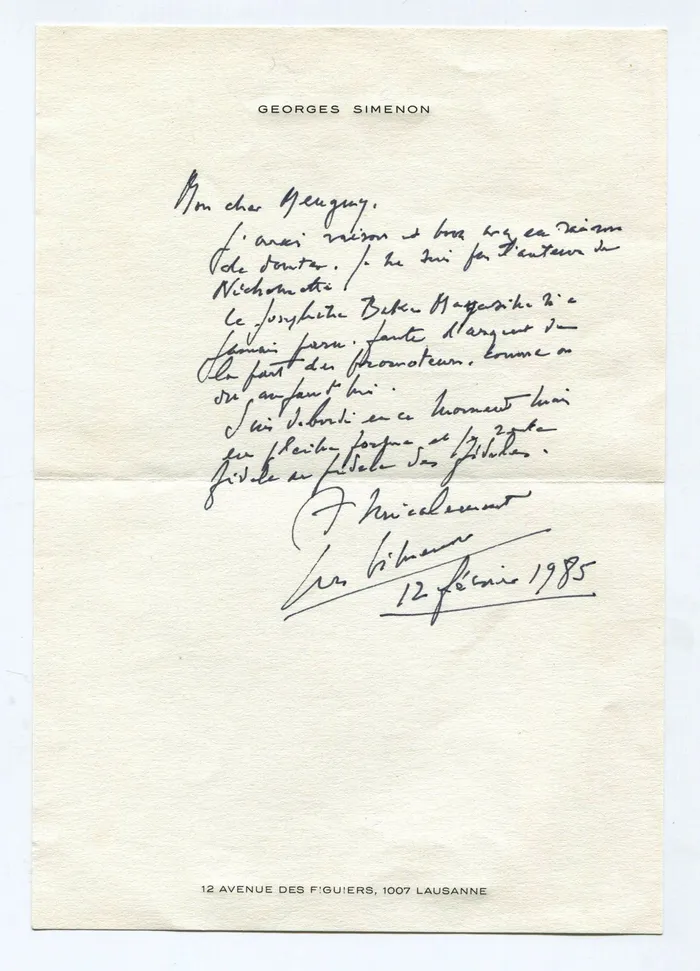 GEORGES SIMENON
Mon cher Menguy,
J'avais raison et vous avez eu raison
de douter. Je ne suis pas l'auteur de
Nichonnette
Le Josephine Baker Magazine n'a
jamais paru, faute d'argent de
la part des promoteurs, comme on
dit aujourd'hui.
Suis débordé en ce moment mais
en pleine forme et je reste
fidèle au fidèle des fidèles.
Amicalement
Simenon
12 février 1985
12 AVENUE DES FIGUIERS, 1007 LAUSANNE